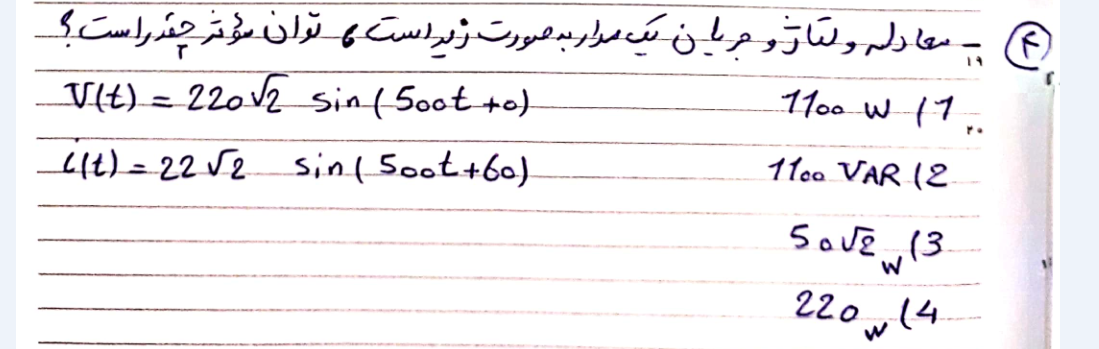 ۴ - معادله ولتاژ و جریان یک مدار به صورت زیر است، توان مؤثر چقدر است؟
V(t) = 220√2 sin(500t+0) 1100 W (1
i(t) = 22√2 sin(500t+60) 1100 VAR (2
50√2 W (3
220 W (4